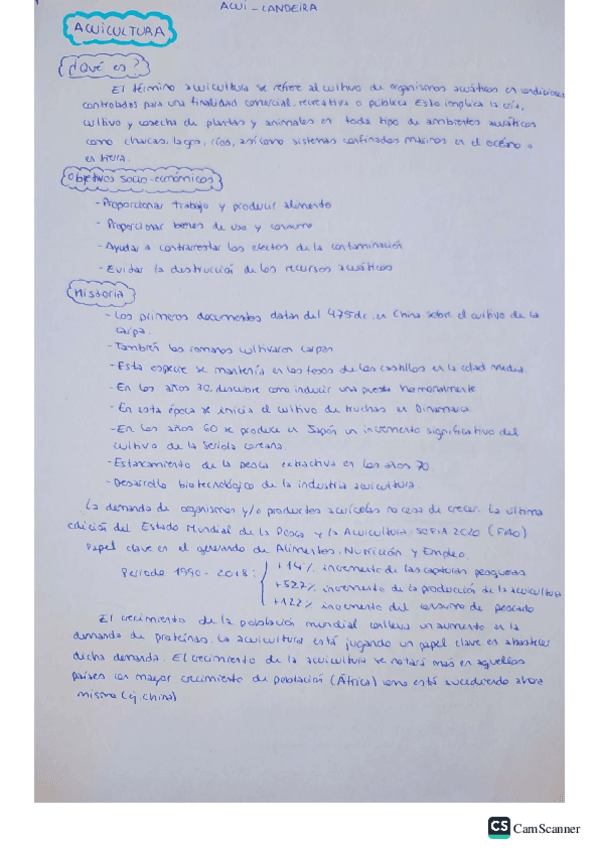 ACUI - LANDEIRA
ACUICULTURA
¿Qué es?
El término acuicultura se refiere al cultivo de organismos acuáticos en condiciones
controladas para una finalidad comercial, recreativa o pública. Esto implica la cría,
cultivo y cosecha de plantas y animales en todo tipo de ambientes acuáticos
como charcas, lagos, ríos, así como sistemas confinados marinos en el océano o
en tierra.
Objetivos socio-económicos
- Proporcionar trabajo y producir alimento
- Proporcionar bienes de uso y consumo
- Ayudar a contrarrestar los efectos de la contaminación
- Evitar la destrucción de los recursos acuáticos
Historia
- Los primeros documentos datan del 475 dc. en China sobre el cultivo de la
carpa.
- También los romanos cultivaron carpas
- Esta especie se mantenía en los fosos de los castillos en la edad media
- En los años 30, descubre como inducir una puesta hormonalmente
- En esta época se inicia el cultivo de truchas en Dinamarca.
- En los años 60 se produce en Japón un incremento significativo del
cultivo de la Seriola coreana.
- Estancamiento de la pesca extractiva en los años 70
- Desarrollo biotecnológico de la industria acuicultura.
La demanda de organismos y/o productos acuícolas no cesa de crecer. La última
edición del Estado Mundial de la Pesca y la Acuicultura SOFIA 2020 (FAO)
Papel clave en el generando de Alimentos, Nutrición y Empleo.
Periodo 1990-2018:
+14% incremento de las capturas pesqueras
+527% incremento de la producción de la acuicultura
+122% incremento del consumo de pescado
El crecimiento de la población mundial conlleva un aumento en la
demanda de proteínas. La acuicultura está jugando un papel clave en abastecer
dicha demanda. El crecimiento de la acuicultura se notará más en aquellos
países con mayor crecimiento de población (África) como está sucediendo ahora
mismo (ej china)
CS CamScanner